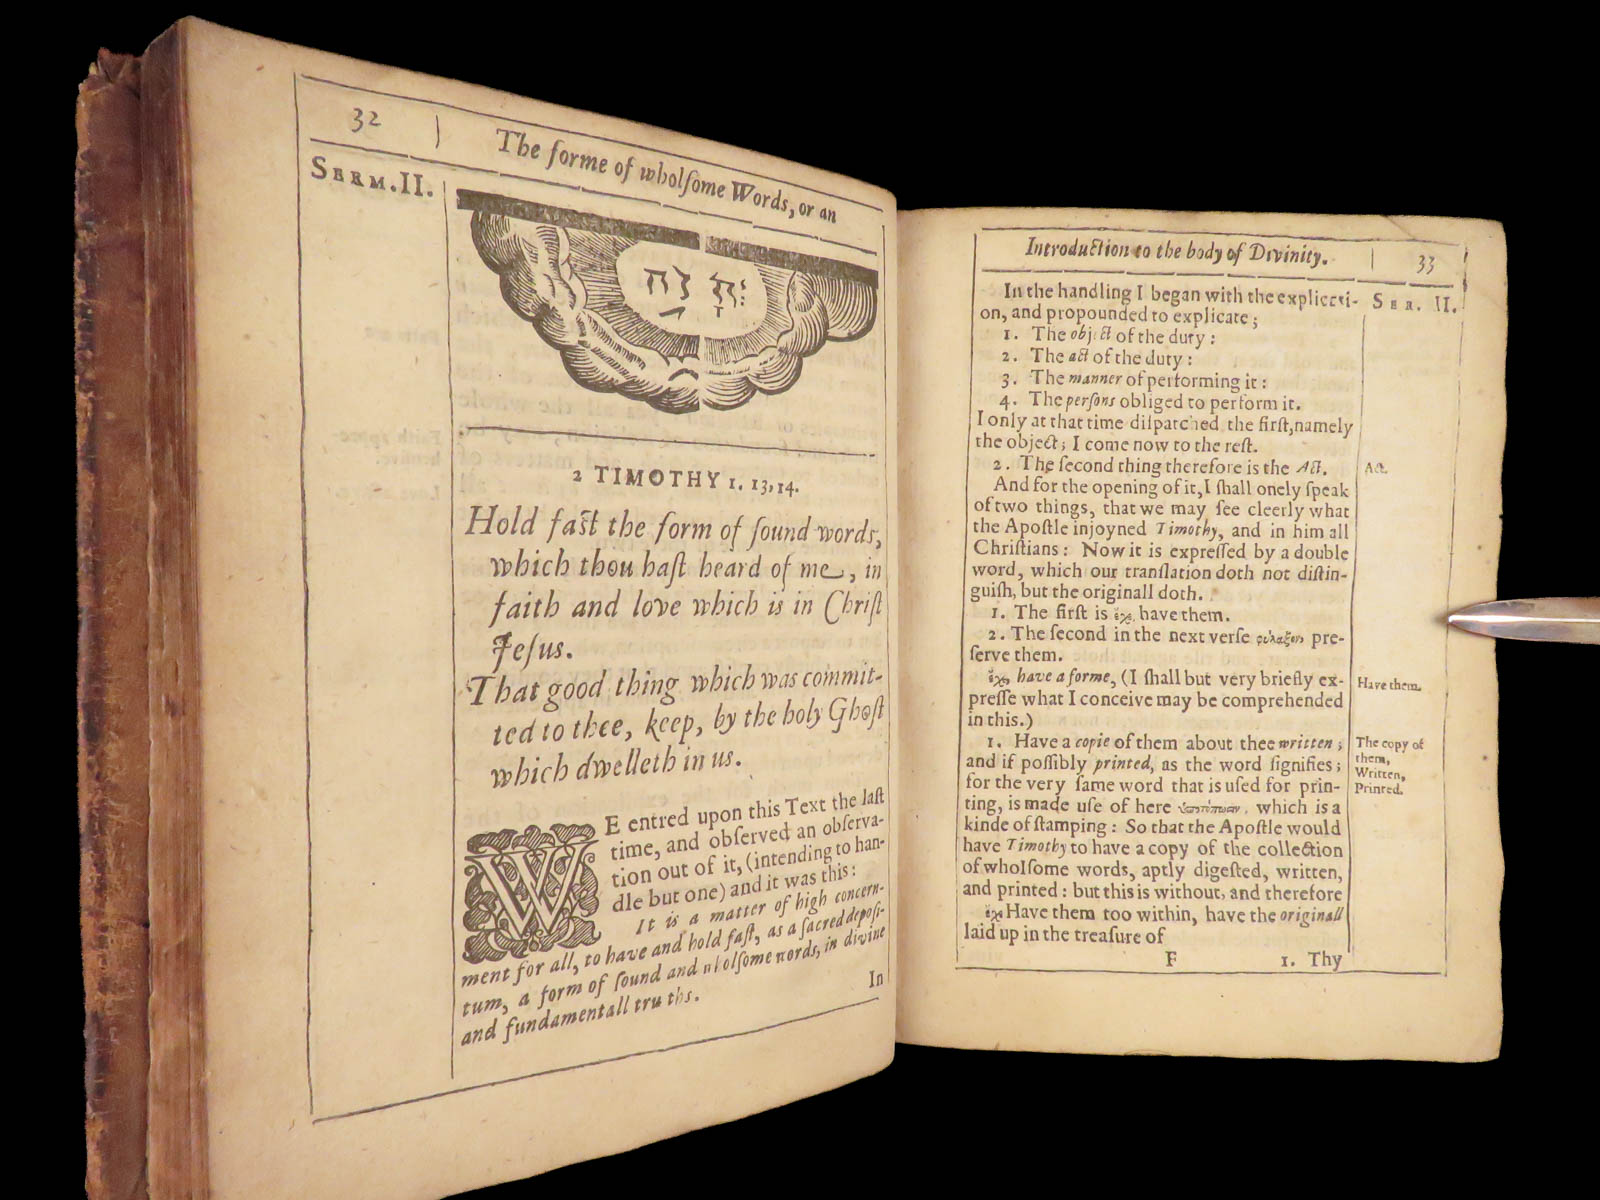 32
The forme of wholſome Words, or an
SERM. II.
2 TIMOTHY 1. 13,14.
Hold faſt the form of ſound words,
which thou haſt heard of me, in
faith and love which is in Chriſt
Jeſus.
That good thing which was commit-
ted to thee, keep, by the holy Ghoſt
which dwelleth in us.
WE entred upon this Text the laſt
time, and obſerved an obſerva-
tion out of it, (intending to han-
dle but one) and it was this:
It is a matter of high concern-
ment for all, to have and hold faſt, as a ſacred depoſi-
tum, a form of ſound and wholſome words, in divine
and fundamentall truths.
In
Introduction to the body of Divinity.
33
SER. II.
In the handling I began with the explicati-
on, and propounded to explicate;
1. The object of the duty:
2. The act of the duty:
3. The manner of performing it:
4. The perſons obliged to perform it.
I only at that time diſpatched the firſt, namely
the object; I come now to the reſt.
2. The ſecond thing therefore is the Act.
Act.
And for the opening of it, I ſhall onely ſpeak
of two things, that we may ſee cleerly what
the Apoſtle injoyned Timothy, and in him all
Chriſtians: Now it is expreſſed by a double
word, which our tranſlation doth not diſtin-
guiſh, but the originall doth.
1. The firſt is have them.
2. The ſecond in the next verſe pre-
ſerve them.
have a forme, (I ſhall but very briefly ex-
Have them.
preſſe what I conceive may be comprehended
in this.)
1. Have a copie of them about thee written;
The copy of
them,
Written,
Printed.
and if poſſibly printed, as the word ſignifies;
for the very ſame word that is uſed for prin-
ting, is made uſe of here which is a
kinde of ſtamping: So that the Apoſtle would
have Timothy to have a copy of the collection
of wholſome words, aptly digeſted, written,
and printed: but this is without, and therefore
Have them too within, have the originall
laid up in the treaſure of
F
1. Thy